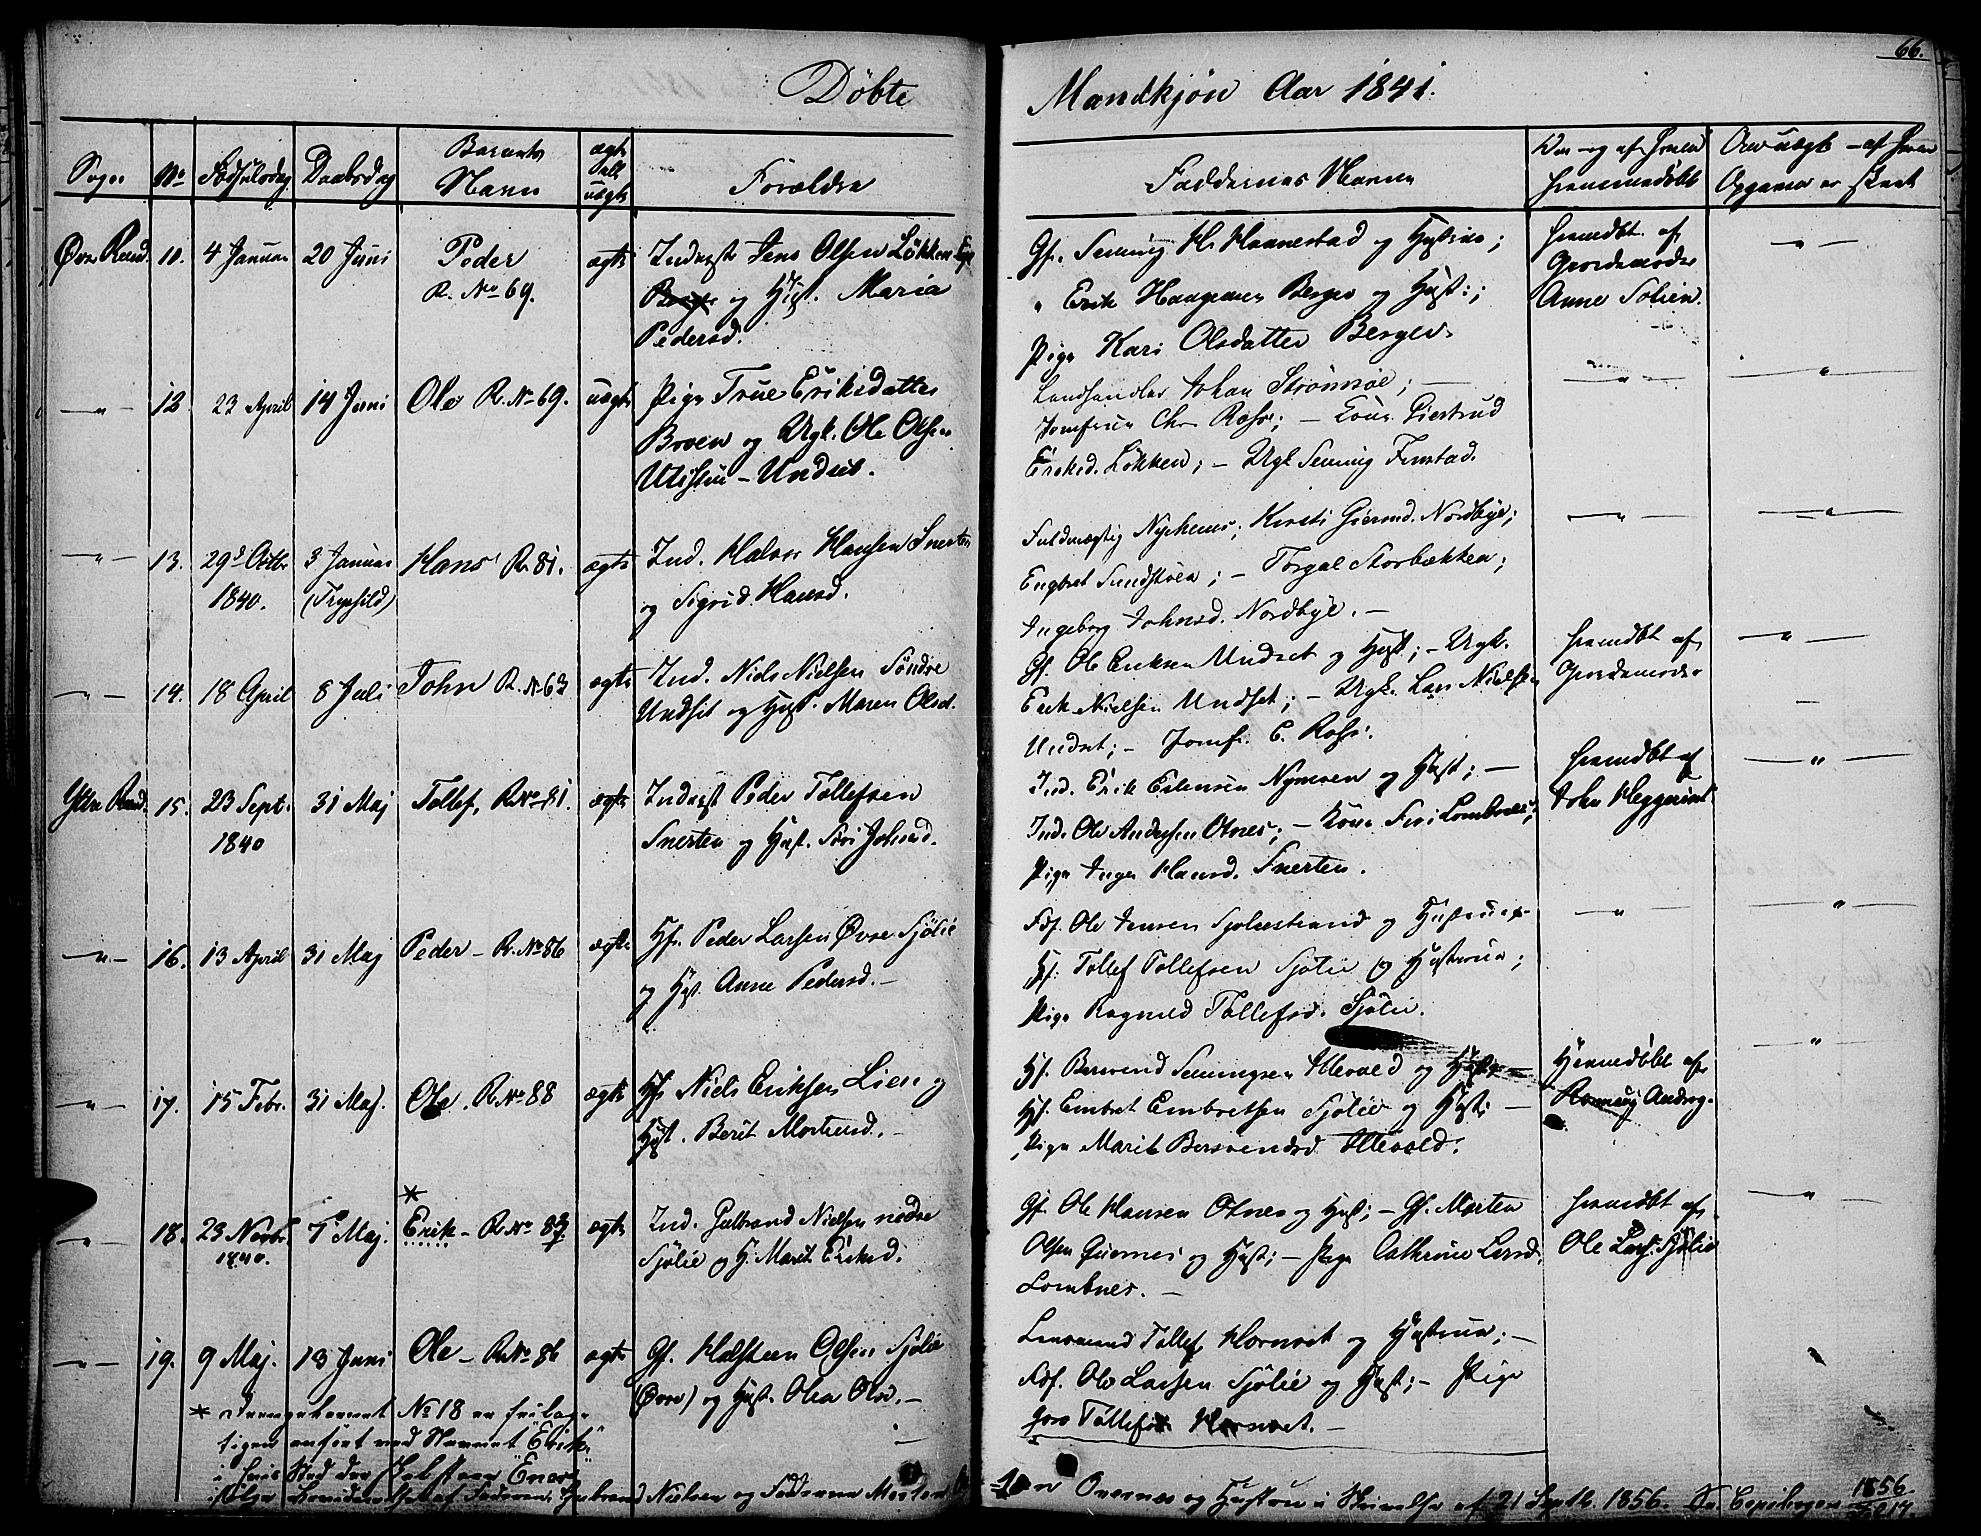 66.
Döbte
Mandkjön Aar 1841.
Sogn No Födselsdag Daabsdag Barnets Navn ægte ell uægte Forældre
Faddernes Navne
Naar og af hvem hjemmedöbt
Om uægte — af hvem Opgaven er skeet
Øvre Rend. 10. 4 Januar 20 Juni Peder R. No 69. ægte Inderst Jens Olsen Lökken
og Hust. Maria
Pedersd.
Gf. Semming H. Haanestad og Hustrue;
" Erik Haagensen Berger og Hust:;
Pige Kari Olsdatter Berger.
hjemdbt. af
Gjordemoder
Anne Solien.
— " —
— " — 12. 23 April 14 Juni Ole R. No 69. uægte Pige True Eriksdatter
Broen og Ugk. Ole Olsen
Utistuen – Undset.
Landhandler Johan Strömsöe; —
Jomfrue Chr. Ross; — Kone Giertrud
Eriksd. Lökken; — Ugk Semming Finstad.
— " —
— " —
— " — 13. 29d Octbr 1840. 3 Januar (Trysild) Hans R. 81. ægte Ind. Halvor Hansen Snerten
og Sigrid Hansd.
Fuldmægtig Nyehuus; Kirsti Giermd. Nordbye;
Engbret Sundstöen; — Torgal Storbækken;
Ingeborg Johnsd. Nordbye. —
— " —
— " —
— " — 14. 18 April 8 Juli John R. No 63 ægte Ind. Niels Nielsen Söndre
Undset og Hust. Maren Olsd.
Gf. Ole Eriksen Undset og Hust; — Ugk.
Erik Nielsen Undset; — Ugk. Lars Nielsen
Undset; — Jomfr. C. Ross.
hjemdbt af
Gjordemoder
— " —
Yttre Rend. 15. 23 Sept. 1840 31 Maj Tollef, R. No 81. ægte Inderst Peder Tollefsen
Snerten og Hust. Siri Johnsd.
Ind. Erik Estensen Nymoen og Hust; —
Ind. Ole Andersen Otnes; — Kone Siri Lombnes;
Pige Inger Hansd. Snerten.
hjemdbt af
John Heggeriset
— " —
— " — 16. 13 April 31 Maj Peder – R. No 86 ægte Hf. Peder Larsen Øvre Sjölie
og Hust. Anne Pedersd. —
Fdf. Ole Jensen Sjölistrand og Hustrue;
Hf. Tollef Tollefsen Sjölie og Hustrue;
Pige Ragnild Tollefsd. Sjölie.
— " —
— " —
— " — 17. 15 Febr. 31 Maj. Ole. R. No 88 ægte Hf. Niels Eriksen Lien og
Hust. Berit Mortensd. —
Hf. Bersvend Semmingsen Illevold og Hust; —
Hf. Embret Embretsen Sjölie og Hust; —
Pige Marit Bersvendsd Illevold.
Hjemmedöbt af
Androg.
— " —
— " — 18. 23 Novbr. 1840. 7 Maj. * Erik – R. No 83 ægte Ind. Gulbrand Nielsen nedre
Sjölie og H. Marit Eriksd.
Gf. Ole Hansen Otnes og Hust; — Gf. Morten
Olsen Qvernes og Hust; — Pige Cathrine Larsd.
Lombnes. —
hjemdbt af
Ole Lars. Sjölie
— " —
— " — 19. 9 Maj. 13 Juni Ole – R. No 86 ægte Gf. Halsteen Olsen Sjölie
(Øvre) og Hust. Olea Olsd. —
Lensmand Tollef Hornset og Hustrue; —
Fdf. Ole Larsen Sjölie og Hust; — Pige
Goro Tollefsd. Hornset. —
* Drengebarnet No 18 er feilag-
tigen anfört med Navnet "Erik"
i hvis Sted der skal staae "Enar"
ifölge Gulbrand Nielsen og Fadderne Morten
Qvernes og Hustru i Skrivelse af 21 Septb. 1856. Copibogen 1856